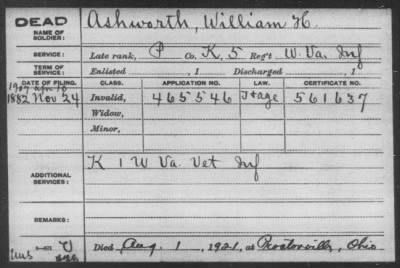 DEAD
NAME OF SOLDIER: Ashworth, William H.
SERVICE: Late rank, P Co. K, 5 Reg't W. Va. Inf
TERM OF SERVICE: Enlisted , 1 Discharged , 1
DATE OF FILING. CLASS. APPLICATION NO. LAW. CERTIFICATE NO.
1907 Apr 10
1882 Nov 24 Invalid, 465546 & age 561637
Widow,
Minor,
ADDITIONAL SERVICES: K 1 W Va. Vet Inf
REMARKS:
Died Aug. 1, 1921, at Proctorville, Ohio